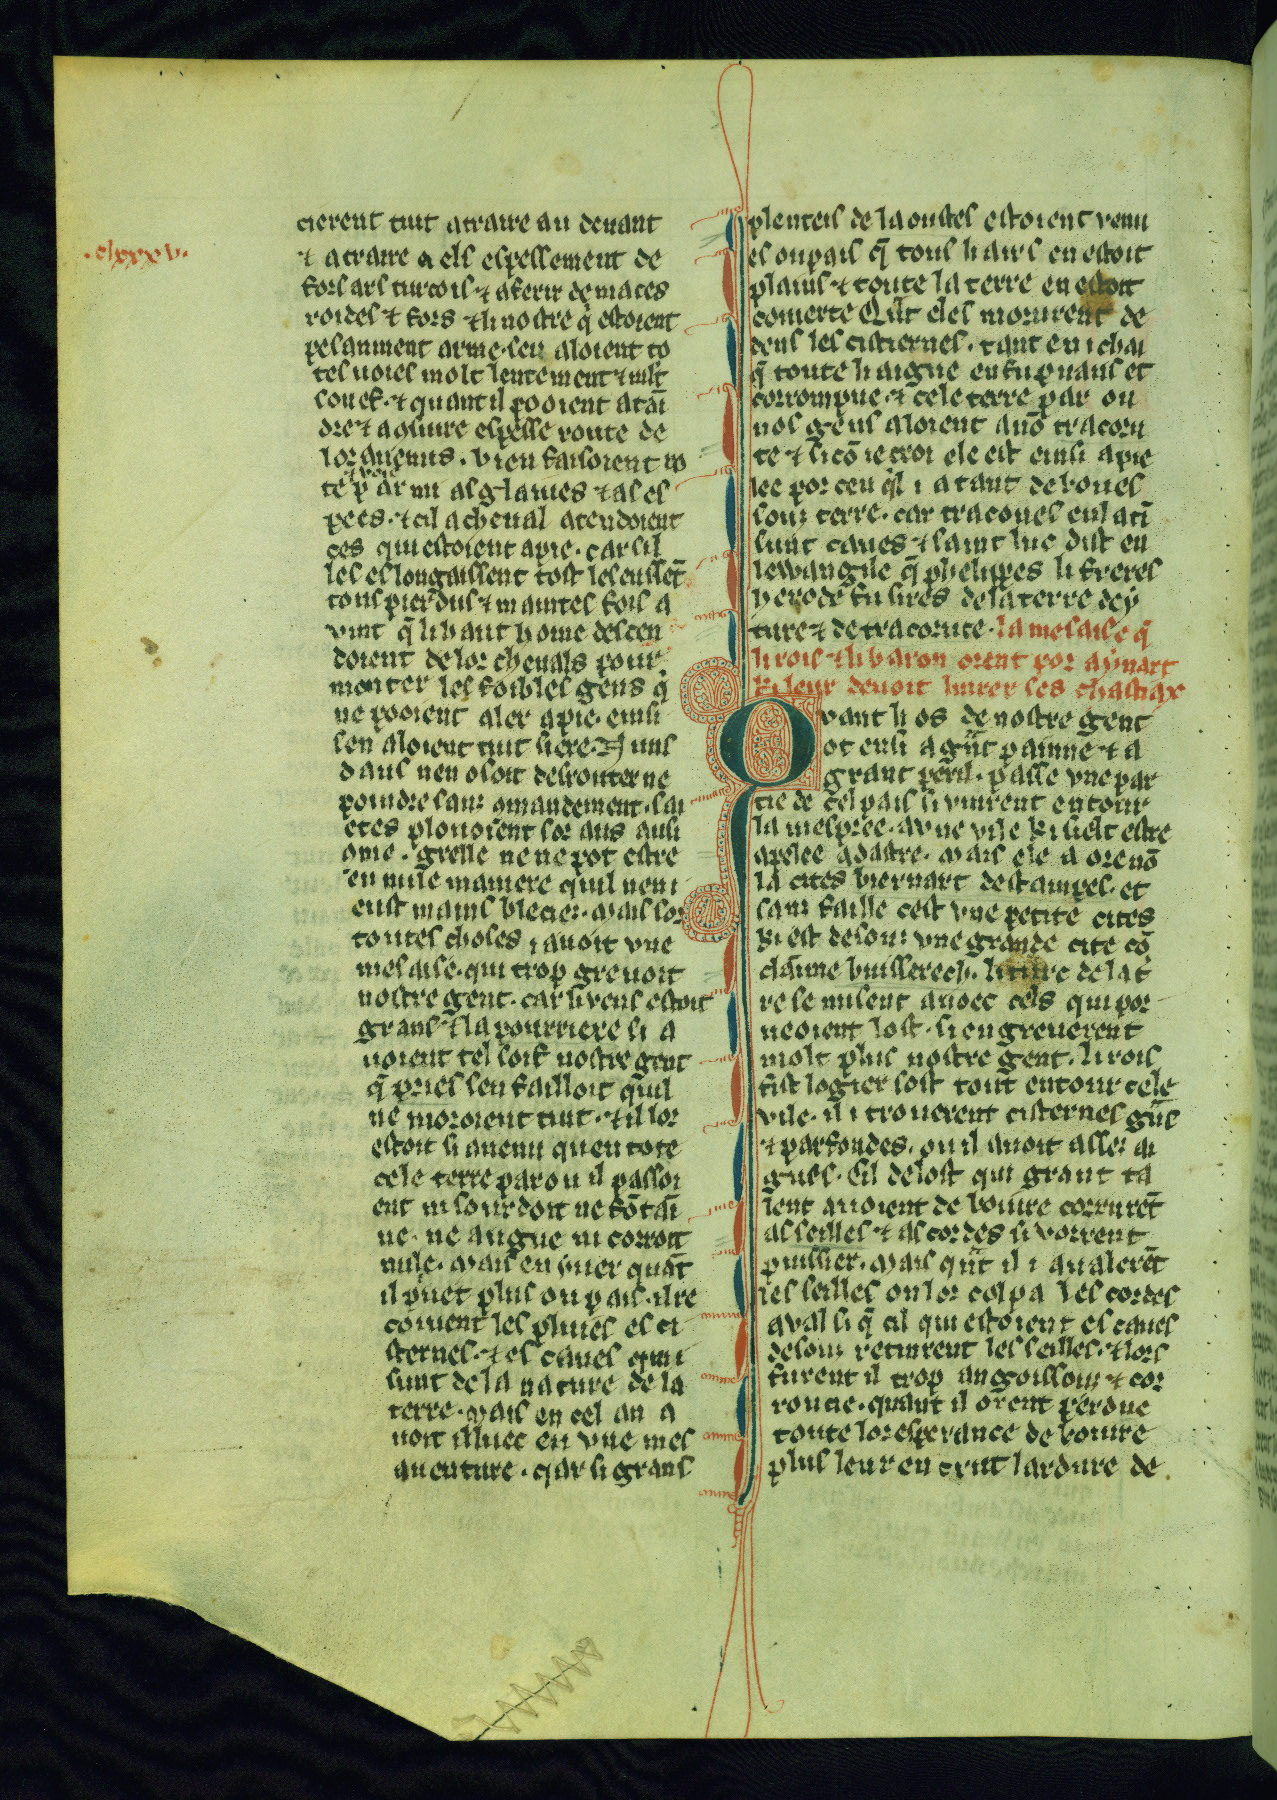 .clxxxv.
cierent tuit a traire au deuant
⁊ a traire a els espessement de
fors ars turcois ⁊ a ferir de maces
roides ⁊ fors ⁊ li nostre q̄ estoient
pesaument arme. sen aloient to
tes uoies molt lentement ⁊ mlt
souef. ⁊ quant il pooient atai
dre ⁊ a
lor anemis. bien faisoient
pees. ⁊ cil a cheual atendoient
ces qui estoient a pie. car sil
les eslongaissent tost les eussēt
tous pierdus ⁊ maintes fois a
uint q̄ li haut home descen
doient de lor cheuals pour
monter les foibles gens q̄
ne pooient aler a pie. ensi
sen aloient tuit siere. Nuns
daus nen osoit desrouter ne
poindre sans omandement. sai
etes plouoient sor aus ausi
ome. grelle ne ne pot estre
en nule maniere quil neni
eust mains blecies. Mais sor
toutes choses i auoit vne
mesaise. qui trop greuoit
nostre gent. car li vens estoit
grans ⁊ la pourriere si a
uoient tel soif nostre gent
q̄ pries sen failloit quil
ne moroient tuit. ⁊ il lor
estoit si auenu quen tote
cele terre par ou il passoi
ent ni sourdoit ne fōtai
ne. ne augue ni corroit
nule. Mais en yuer quāt
il puet plus ou pais. il re
coiuent les pluies es ci
sternes. ⁊ es caues qui i
sunt de la nature de la
terre. Mais en cel an a
uoit illuec eu vne mes
auenture. qar si grans
plenteis de laoustes estoient venu
es ou pais q̄ tous li airs en estoit
plains ⁊ toute la terre en estoit
couuerte Q̄nt eles morurent de
dens les cisternes. tant en i chai
q̄ toute li aigue en fu puans et
corrompue. ⁊ cele terre par ou
nos gens aloient a nō traconi
te ⁊ si cō ie croi ele est ensi apie
lee por ceu q̄l i a tant de boues
sous terre. car tracones
sunt caues ⁊ saint luc dist en
lewangile q̄ phelippes li freres
herode fu sires de la terre dey
ture ⁊ de traconite. la mesaise q̄
li rois ⁊ li baron orent por aynart
ki leur deuoit liurer ses chastiax
Quant li os de nostre gent
ot ensi a gnt painne ⁊ a
grant peril. passe vne par
tie de cel pais si vinrent entour
la mespree. A vne vile ki sielt estre
apelee adastre. Mais ele a ore nō
la cites biernart destampes. et
sans faille cest vne petite cites
ki est desous vne grande cite cō
claīme buissereth. li turc de la t̄
re se misent auoec cels qui por
ueoient lost. si en greuerent
molt plus nostre gent. li rois
fist logier sost tout entour cele
vile. il i trouerent cisternes gn̄s
⁊ parfondes. ou il auoit asses ai
gues. Cil de lost qui grant ta
lent auoient de boiure corrurēt
as seilles ⁊ as cordes si vorrent
puissier. Mais qn̄t il i aualerēt
les seilles on lor colpa les cordes
aual si q̄ cil qui estoient es caues
desous retinrent les seilles. ⁊ lors
furent il trop angoissous ⁊ cor
roucie. quant il orent perdue
toute lor esperance de boiure
plus leur en crut lardure de